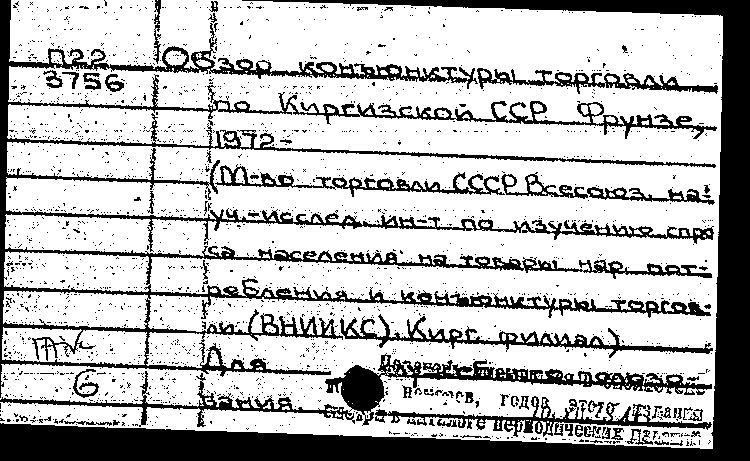 П22
3756
Обзор конъюнктуры торговли
по Киргизской ССР Фрунзе,
1972-
(М-во торговли СССР Всесоюз. на-
уч.-исслед. ин-т по изучению спро
са населения на товары нар. пот-
ребления и конъюнктуры торгов-
ли (ВНИИКС). Кирг. филиал)
Для
6
вания.
номеров, годов этого издания
смотри в каталоге периодических изданий